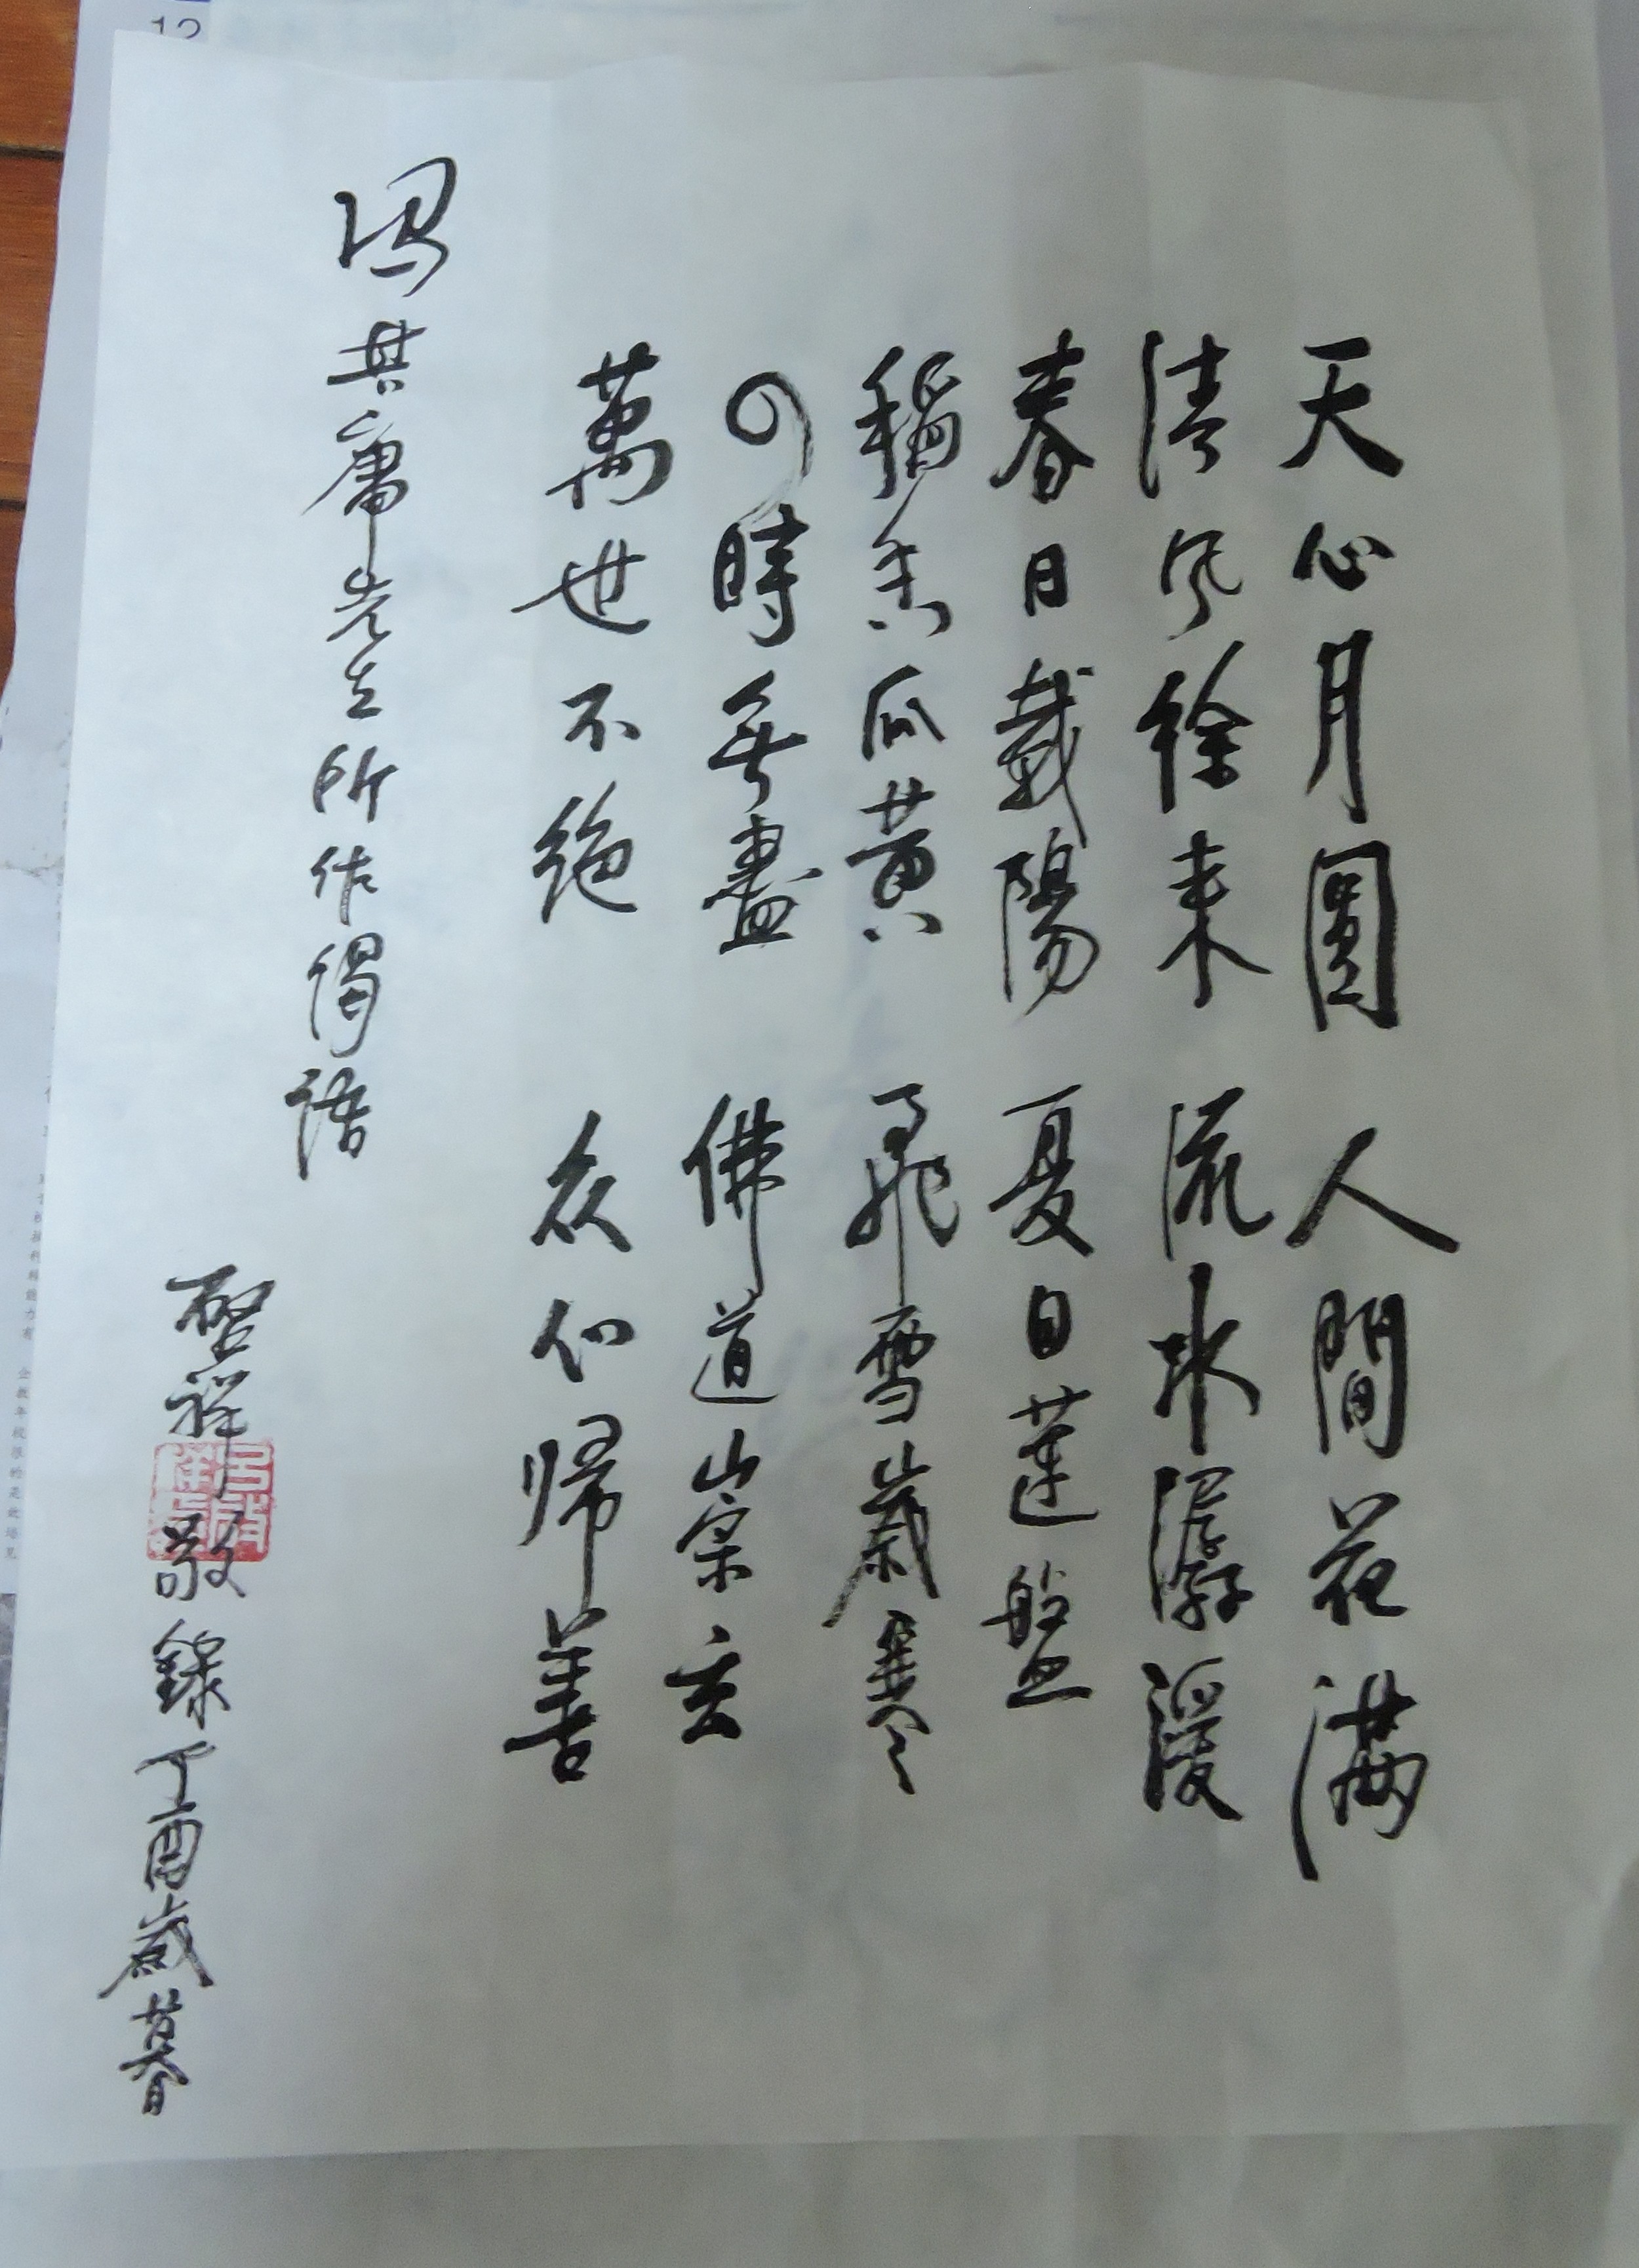 天心月圓 人間花滿
清风徐来 流水潺湲
春日載陽 夏日蓮盤
稻香瓜黄 飛雪歲寒
四時無盡 佛道崇玄
萬世不絕 众仙帰善
冯其庸先生所作偈語
啓祥敬錄丁酉歲暮
12